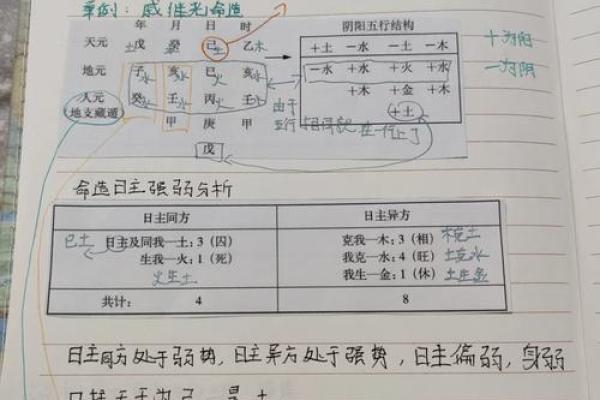 案例：戚继光命造
年 月 日 时
天元 土戊 癸水 己土 乙木
地元 子水 亥水 巳火 亥水
人元 癸水 壬水 丙火 壬水
（地支藏遁） 甲 庚 甲
戊
阴阳五行结构
＋土 －水 －土 －木
－水 ＋水 ＋火 ＋水
＋木 ＋金 ＋木
＋土
十为阳
一为阴
由于
五行 在一行上了
命造日主强弱分析
日主同方 日主异方
己土 日主及同我—土：3（囚） 克我—木：3（相） 木克土
生我—火：1（死） 我克—水：4（旺） 土克水
火生土 我生—金：1（休） 土生金
共计： 4 8
日主同方处于弱势，日主异方处于强势，日主偏弱，身弱